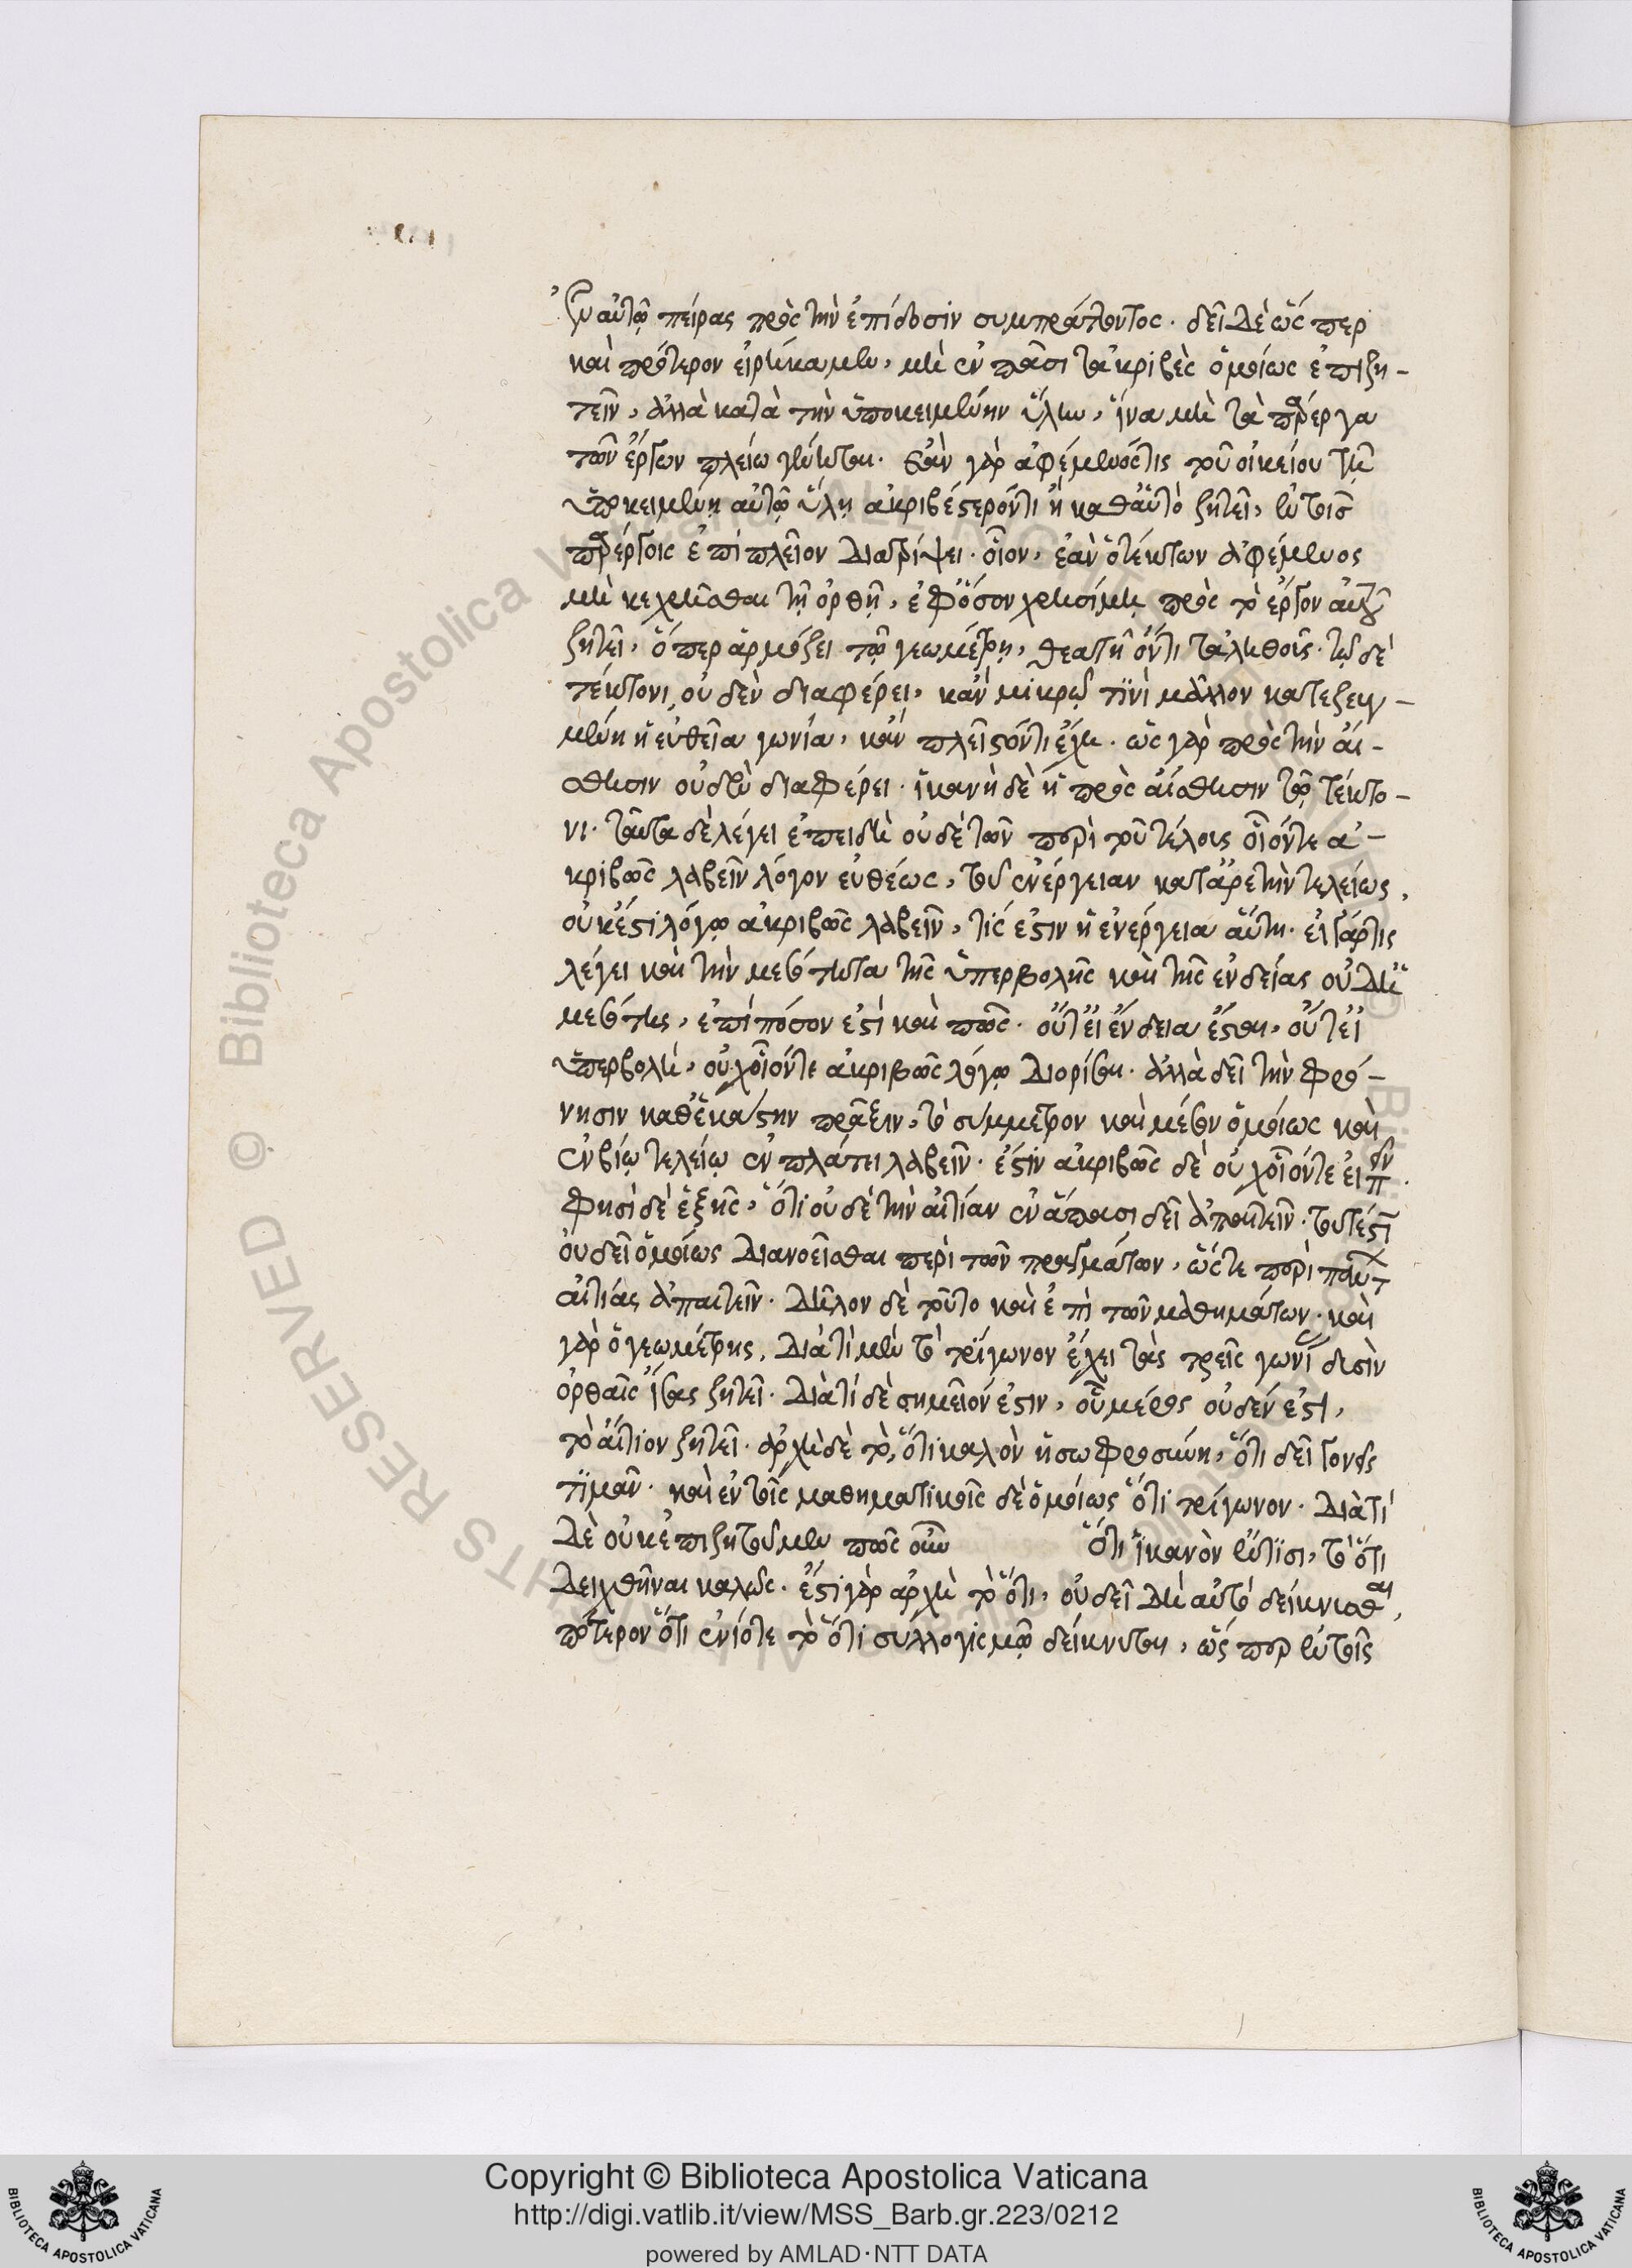 ἐν αὐτῷ πείρας πρὸς τὴν ἐπίδοσιν συμπράττοντος. δεῖ δὲ ὥσπερ
καὶ πρότερον εἰρήκαμεν, μὴ ἐν πᾶσι τἀκριβὲς ὁμοίως ἐπιζη-
τεῖν, ἀλλὰ κατὰ τὴν ὑποκειμένην ὕλην, ἵνα μὴ τὰ πάρεργα
τῶν ἔργων πλείω γένηται. ἐὰν γὰρ ἀφέμενός τις τοῦ οἰκείου τῇ
ὑποκειμένῃ αὐτῷ ὕλῃ ἀκριβέστερόν τι ἢ καθ' αὑτὸ ζητεῖ, ἐν τοῖς
παρέργοις ἐπὶ πλεῖον διατρίψει. οἷον, ἐὰν ὁ τέκτων ἀφέμενος
μὴ κεχρῆσθαι τῇ ὀρθῇ, ἐφ' ὅσον χρησίμη πρὸς τὸ ἔργον
ζητεῖ, ὅπερ ἁρμόζει τῷ γεωμέτρῃ, θεατῇ ὄντι τἀληθοῦς. τῷ δὲ
τέκτονι οὐδὲν διαφέρει, κἂν μικρῷ τινὶ μᾶλλον κατεξευγ-
μένη ἡ εὐθεῖα γωνία, κἂν πλεῖστόν τι ἔχῃ. ὡς γὰρ πρὸς τὴν αἴ-
σθησιν οὐδὲν διαφέρει. ἱκανὴ δὲ ἡ πρὸς αἴσθησιν τῷ τέκτο-
νι. ταῦτα δὲ λέγει ἐπειδὴ οὐδὲ τῶν περὶ τοῦ τέλους οἷόν τε ἀ-
κριβῶς λαβεῖν λόγον εὐθέως, τοῦ ἐνέργειαν κατ' ἀρετὴν τελείως,
οὐκ ἔστι λόγῳ ἀκριβῶς λαβεῖν, τίς ἐστιν ἡ ἐνέργεια αὕτη. εἰ γάρ τις
λέγει καὶ τὴν μεσότητα τῆς ὑπερβολῆς καὶ τῆς ἐνδείας οὐ δὴ
μεσότης, ἐπὶ πόσον ἐστὶ καὶ πῶς. οὔτ' εἰ ἔνδεια ἔσται, οὔτ' εἰ
ὑπερβολή, οὐχ οἷόν τε ἀκριβῶς λόγῳ διορίσαι. ἀλλὰ δεῖ τὴν φρό-
νησιν καθ' ἑκάστην πρᾶξιν, τὸ σύμμετρον καὶ μέσον ὁμοίως καὶ
ἐν βίῳ τελείῳ ἐν πλάτει λαβεῖν. ἔστιν ἀκριβῶς δὲ οὐχ οἷόν τε εἰπεῖν.
φησὶ δὲ ἑξῆς, ὅτι οὐδὲ τὴν αἰτίαν ἐν ἅπασι δεῖ ἀπαιτεῖν. τουτέστι
οὐ δεῖ ὁμοίως διανοεῖσθαι περὶ τῶν πραγμάτων, ὥστε περὶ πάντων
αἰτίας ἀπαιτεῖν. δῆλον δὲ τοῦτο καὶ ἐπὶ τῶν μαθημάτων. καὶ
γὰρ ὁ γεωμέτρης, διὰ τί μὲν τὸ τρίγωνον ἔχει τὰς τρεῖς γωνίας δυσὶν
ὀρθαῖς ἴσας ζητεῖ. διὰ τί δὲ σημεῖόν ἐστιν, οὗ μέρος οὐδέν ἐστι,
τὸ αἴτιον ζητεῖ. ἀρχὴ δὲ τὸ, ὅτι καλὸν ἡ σωφροσύνη, ὅτι δεῖ γονεῖς
τιμᾶν. καὶ ἐν τοῖς μαθηματικοῖς δὲ ὁμοίως ὅτι τρίγωνον. διὰ τί
δὲ οὐκ ἐπιζητοῦμεν πῶς οὖν ὅτι ἱκανὸν ἔν τισι, τὸ ὅτι
δειχθῆναι καλῶς. ἔστι γὰρ ἀρχὴ τὸ ὅτι, οὐ δεῖ δὴ αὐτὸ δείκνυσθαι,
πότερον ὅτι ἐνίοτε τὸ ὅτι συλλογισμῷ δείκνυται, ὥσπερ ἐν τοῖς
Copyright © Biblioteca Apostolica Vaticana
http://digi.vatlib.it/view/MSS_Barb.gr.223/0212
powered by AMLAD·NTT DATA